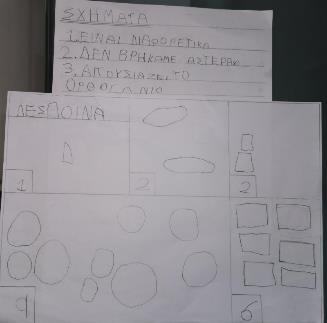 ΣΧΗΜΑΤΑ
1. ΕΙΝΑΙ ΜΑΘΟΡΕΤΙΚΑ
2. ΔΕΝ ΒΡΗΚΑΜΕ ΑΣΤΕΡΑΚ
3. ΑΠΟΥΣΙΑΖΕΙ ΤΟ
ΟΡΘΟΓΩΝΙΟ
ΔΕΣΠΟΙΝΑ
1
2
2
9
6